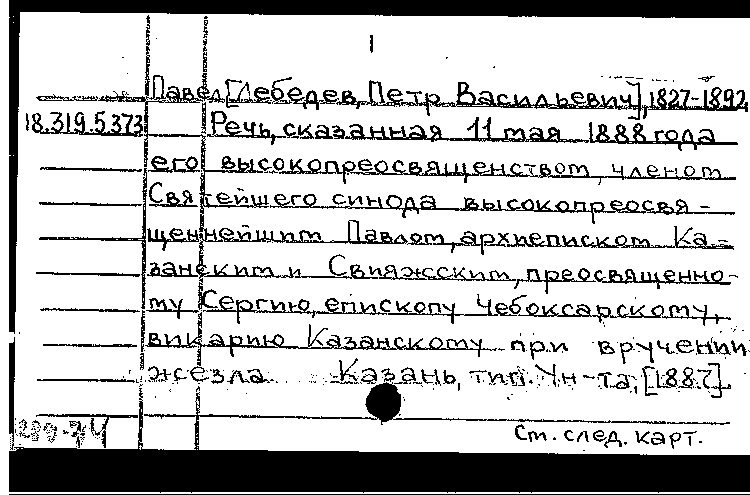 1
Павел[Лебедев, Петр Васильевич], 1827-1892
18.319.5.373 Речь, сказанная 11 мая 1888 года
его высокопреосвященством, членом
Святейшего синода высокопреосвя-
щеннейшим Павлом, архиепископом Ка-
занским и Свияжским, преосвященно-
му Сергию, епископу Чебоксарскому,
викарию Казанскому при вручении
жезла. Казань, тип. Ун-та, [1887].
289-74
См. след. карт.